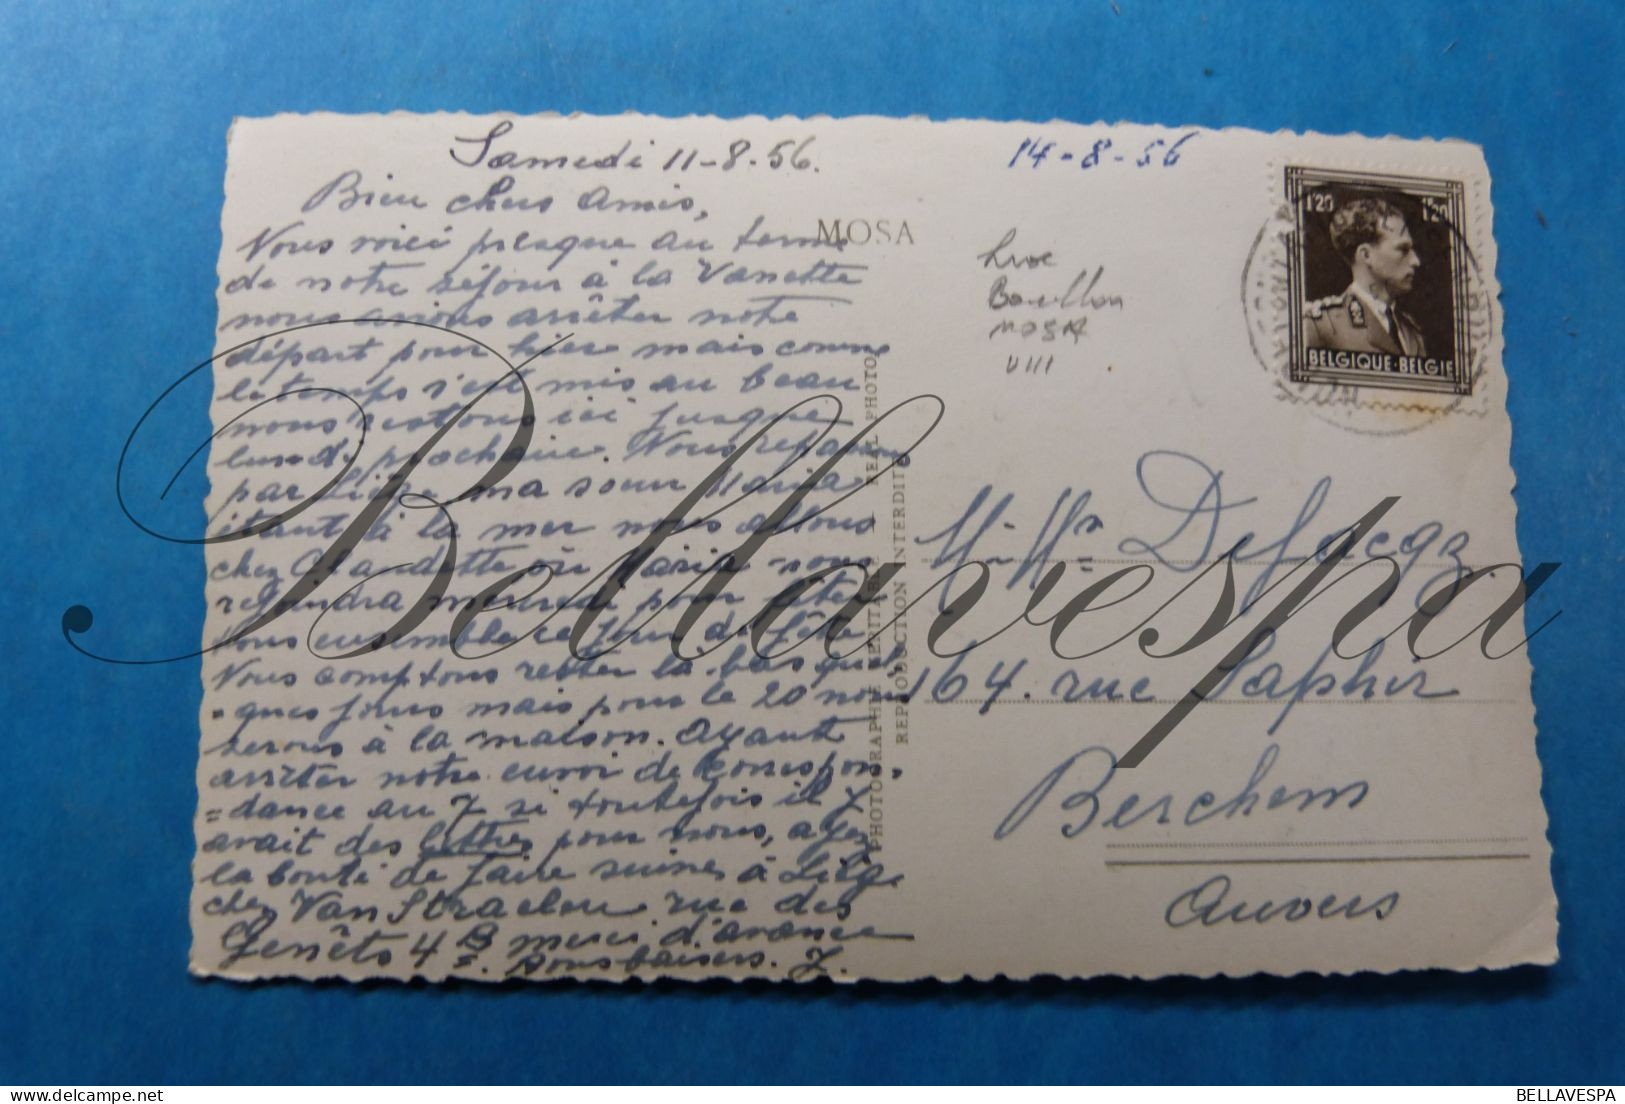 Samedi 11-8-56.
Bien chers Amis,
Nous voici presque au terme
de notre séjour à la Vanette
nous avions arrêter notre
départ pour hier mais comme
le temps s'est mis au beau
nous restons ici jusque
lundi prochain. Nous repassons
par Liège ma soeur Maria
étant à la mer nous allons
chez Claudette où Maria nous
rejoindra mercredi pour fêter
tous ensemble ce jour de fête.
Nous comptons rester là-bas quel,
-ques jours mais pour le 20 nous
serons à la maison. Ayant
arrêter notre envoi de correspon,
=dance au 7 si toutefois il y
avait des lettres pour nous, ayez
la bonté de faire suivre à Liège
chez Van Straelen rue des
Genêts 4 B merci d'avance
Bons baisers. J.
MOSA
PHOTOGRAPHIE VERITABLE - REAL PHOTO
REPRODUCTION INTERDITE
14-8-56
Bouillon
MOSA
VIII
1F20 1F20
BELGIQUE-BELGIE
M. Mr. DeJacqz
164. rue Saphir
Berchem
Anvers
Bellavespa
BELLAVESPA